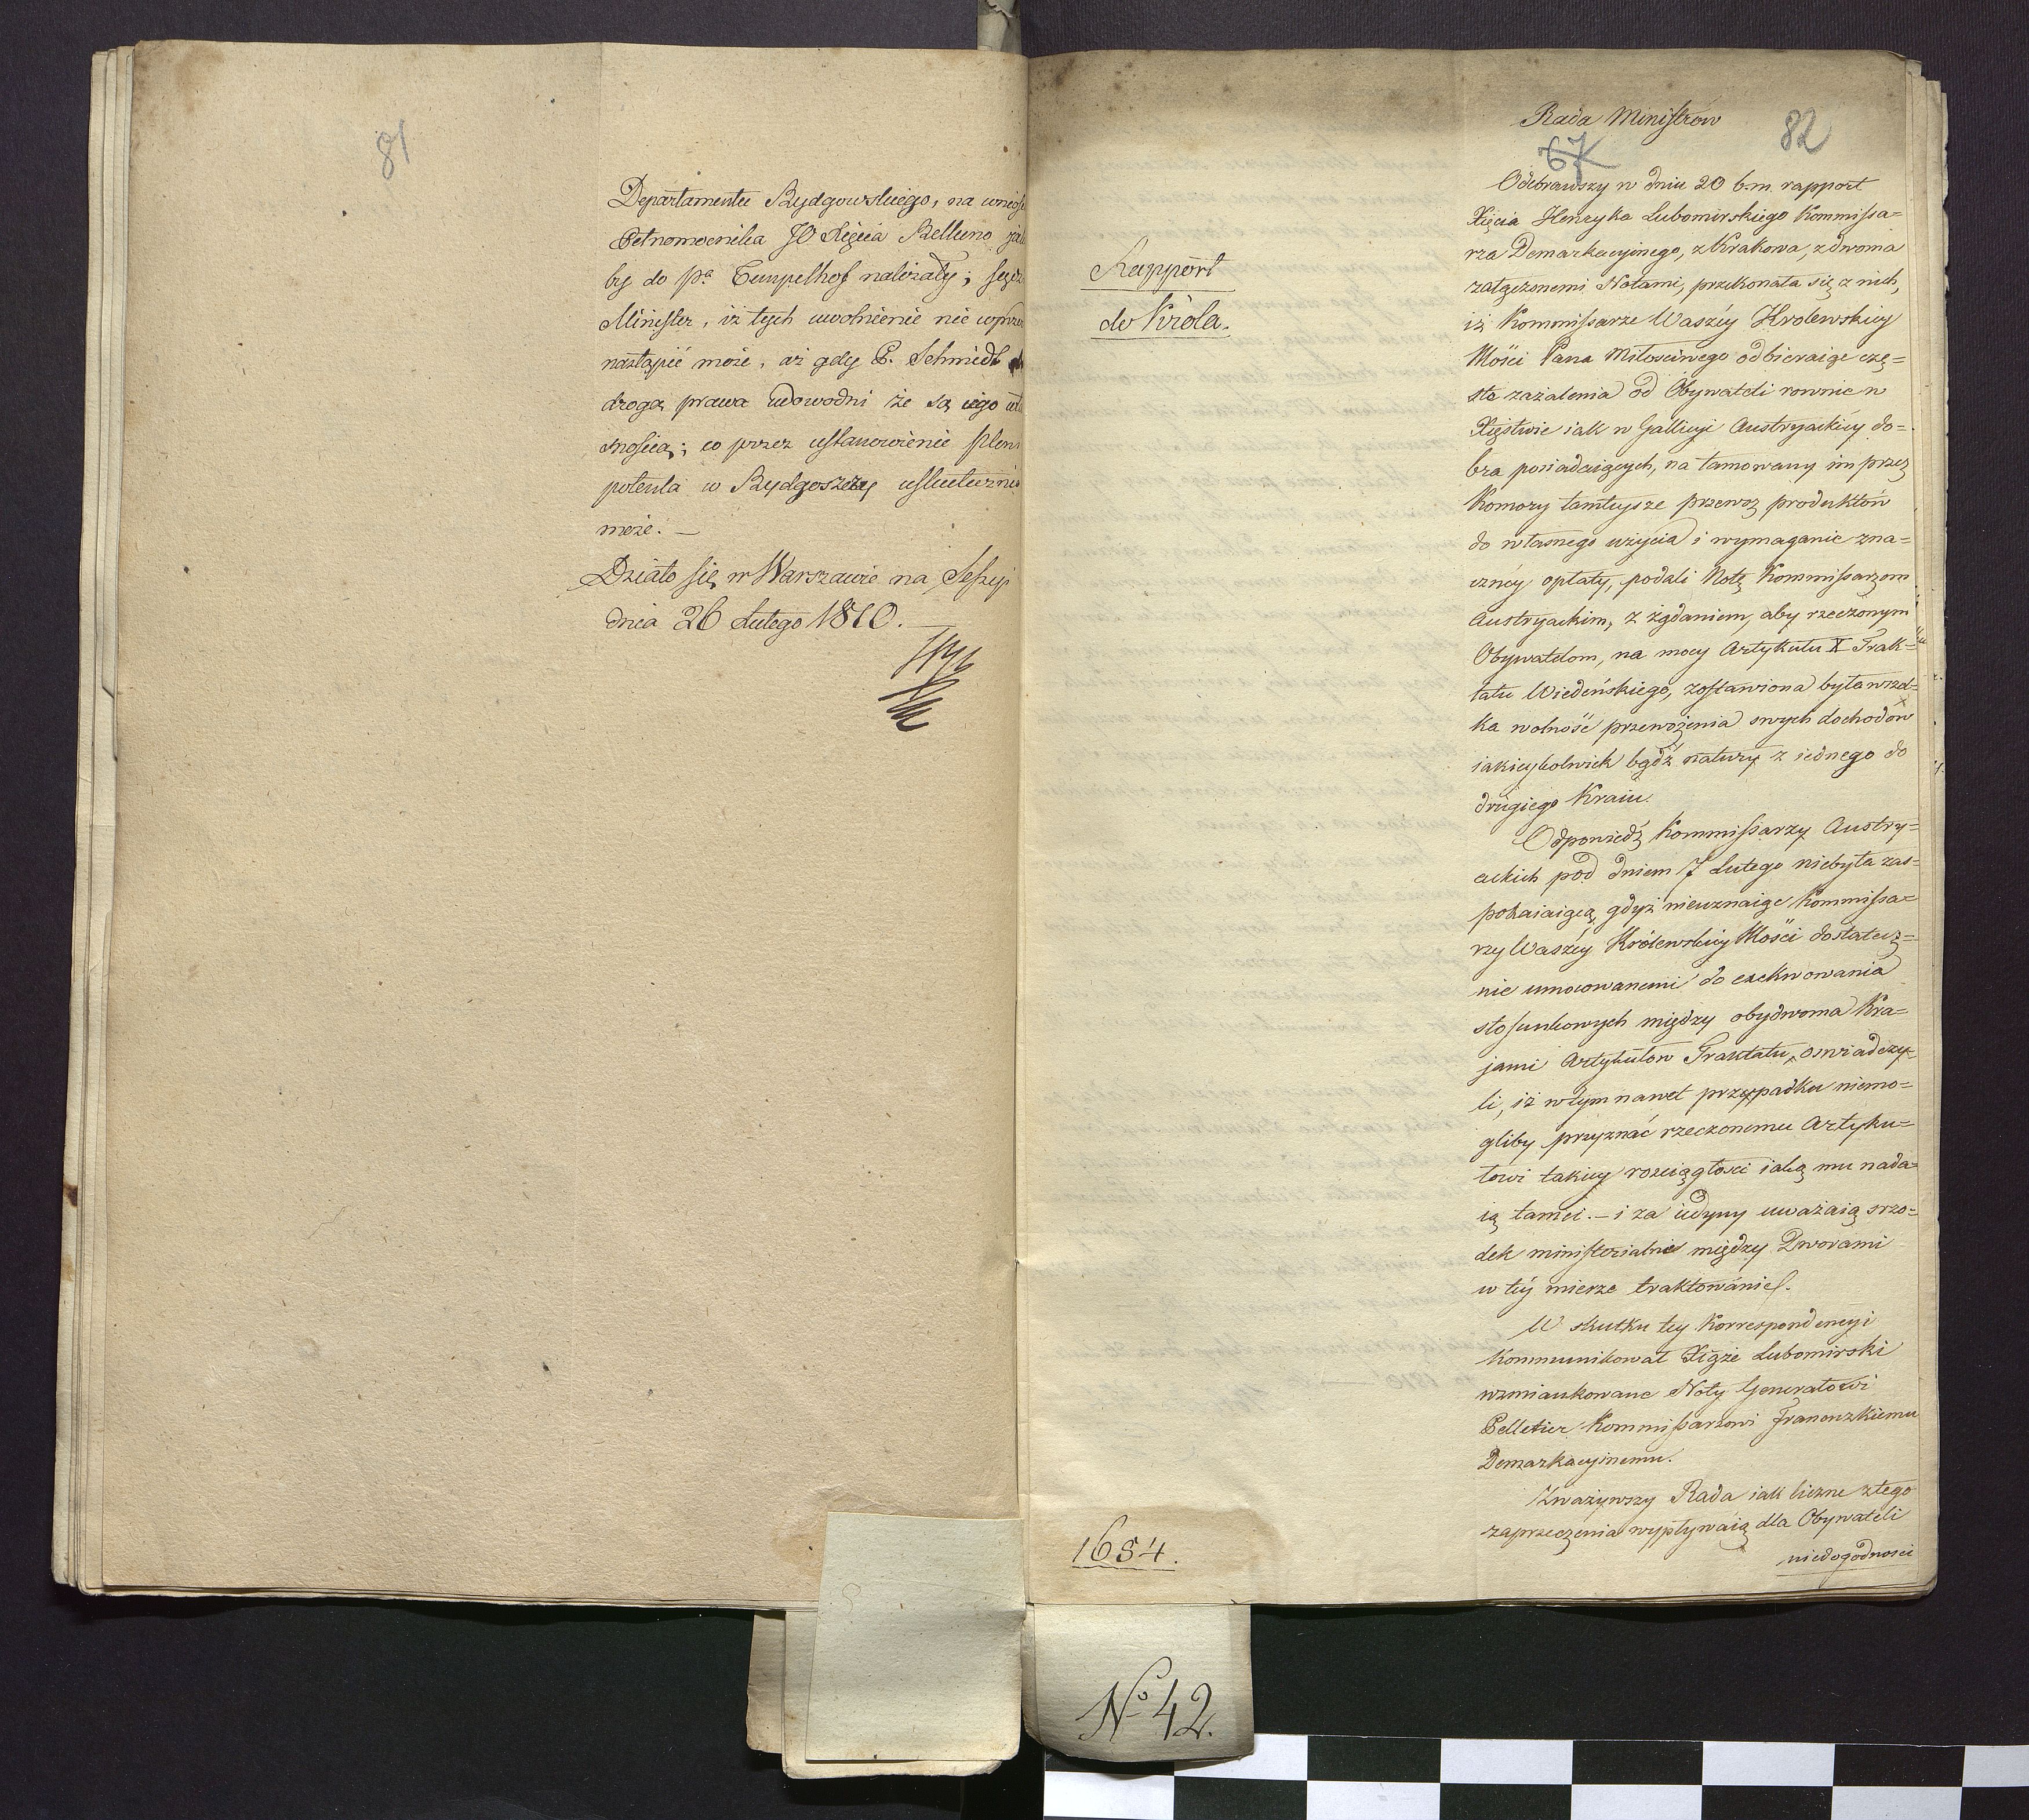 81
Departamentu Bydgowskiego, na wnios
Pełnomocnika JO Xięcia Bellunо
by do Pa Tempelhof należały; sądzi
Minister, iż tych uwolnienie nie
nastąpić może, aż gdy P. Schmidt
drogą prawa udowodni że są iego
snością; co przez ustanowienie pleni
potenta w Bydgoszczy uskutecznić
może. —
Działo się w Warszawie na Sessyi
dnia 26 Lutego 1810. —
Rapport
do Króla.
1654.
No 42.
Rada Ministrów
67
82
Odebrawszy w dniu 20 b.m. rapport
Xięcia Henryka Lubomirskiego Kommissa=
rza Demarkacyinego, z Krakowa, z dwoma
załączonemi Notami, przekonała się z nich,
iż Kommissarze Waszéy Krolewskiey
Mości Pana Miłościwego odbieraiąc czę=
ste zażalenia od Obywateli rownie w
Xięstwie iak w Gallicyi Austryackiéy do=
bra posiadaiących, na tamowany im przez
Komory tamteysze przewoz produktów
do własnego użycia i wymaganie zna=
cznéy opłaty, podali Notę Kommissarzom
Austryackim, z żądaniem, aby rzeczonym
Obywatelom, na mocy Artykułu X Trak=
tatu Wiedeńskiego, zostawiona była wszel=
ka wolność przewożenia swych dochodów
iakieykolwiek bądź natury z iednego do
drugiego Kraiu.
Odpowiedź Kommissarzy Austry=
ackich pod dniem 7 Lutego niebyła zas=
pokaiaiącą, gdyż nieuznaiąc Kommissa=
rzy Waszéy Królewskiey Mości dostatecz=
nie umocowanemi do exekwowania
stosunkowych między obydwoma Kra=
jami Artykułow Traktatu, oswiadczy=
li, iż w tym nawet przypadku niemo=
gliby przyznać rzeczonemu Artyku=
łowi takiey rozciągłości iaką mu nada=
ią tamci. — i za iedyny uważaią srzo=
dek ministerialne między Dworami
w téy mierze traktowanie.
W skutku tey Korrespondencyi
Kommunikował Xiąże Lubomirski
wzmiankowane Noty Generałowi
Pelletier Kommissarzowi Francuzkiemu
Demarkacyinemu.
Zważywszy Rada iak liczne z tego
zaprzeczenia wypływaią dla Obywateli
niedogodnosci